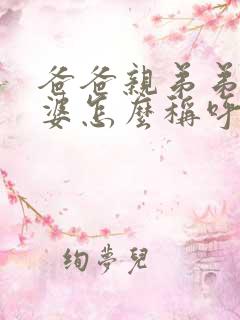 爸爸親弟弟
婆怎麼稱呼
絢夢兒